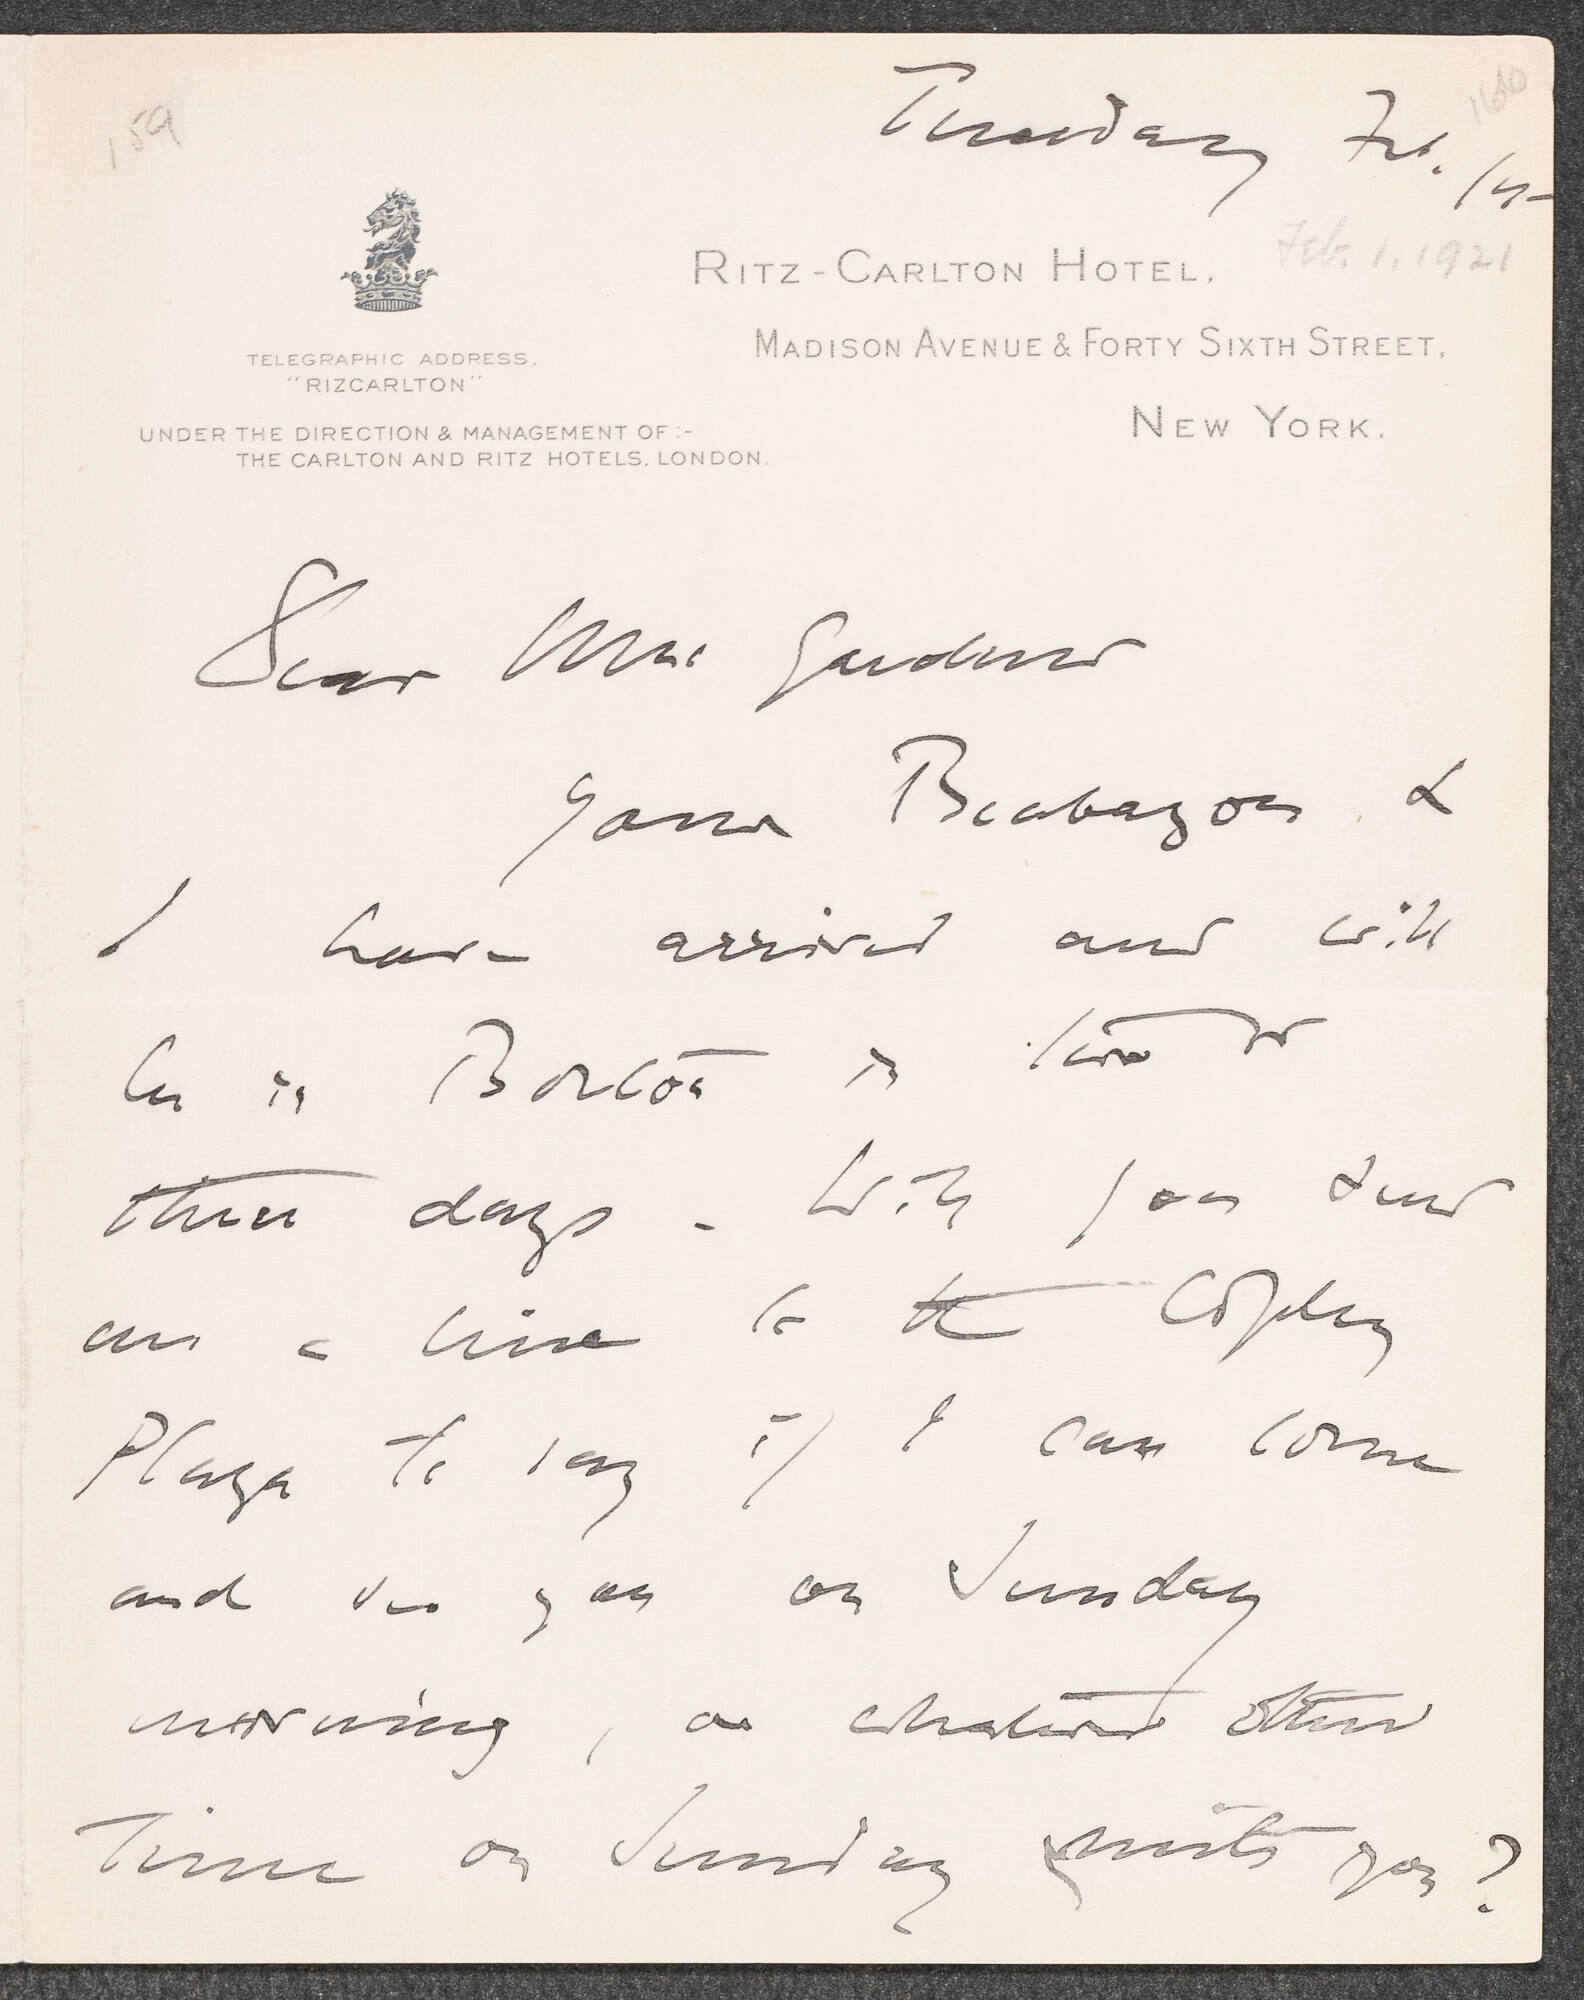 159
1660
Tuesday Feb. 1st
Feb. 1, 1921
RITZ-CARLTON HOTEL,
MADISON AVENUE & FORTY SIXTH STREET,
NEW YORK.
TELEGRAPHIC ADDRESS,
"RIZCARLTON"
UNDER THE DIRECTION & MANAGEMENT OF:-
THE CARLTON AND RITZ HOTELS, LONDON.
Dear Mrs Gardner
Your Brabazon &
I have arrived and will
be in Boston in two or
three days - Will you send
me a line to the Copley
Plaza to say if I can come
and see you on Sunday
morning, or whatever other
time on Sunday suits you?